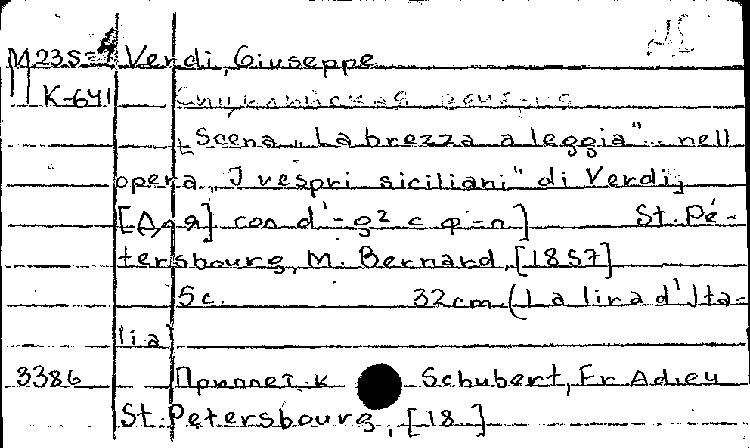 M235-1 Verdi, Giuseppe
K-641 Сицилийская вечерня
„Scena „La brezza aleggia" .. nell
opera „I vespri siciliani" di Verdi;
[Для] con d'-g² с ф-п] St. Pé-
tersbourg, M. Bernard, [1857]
5c. 32cm (La lira d'Ita-
lia)
3386 Приплет. к Schubert, Fr. Adieu
St. Petersbourg, [18 ]